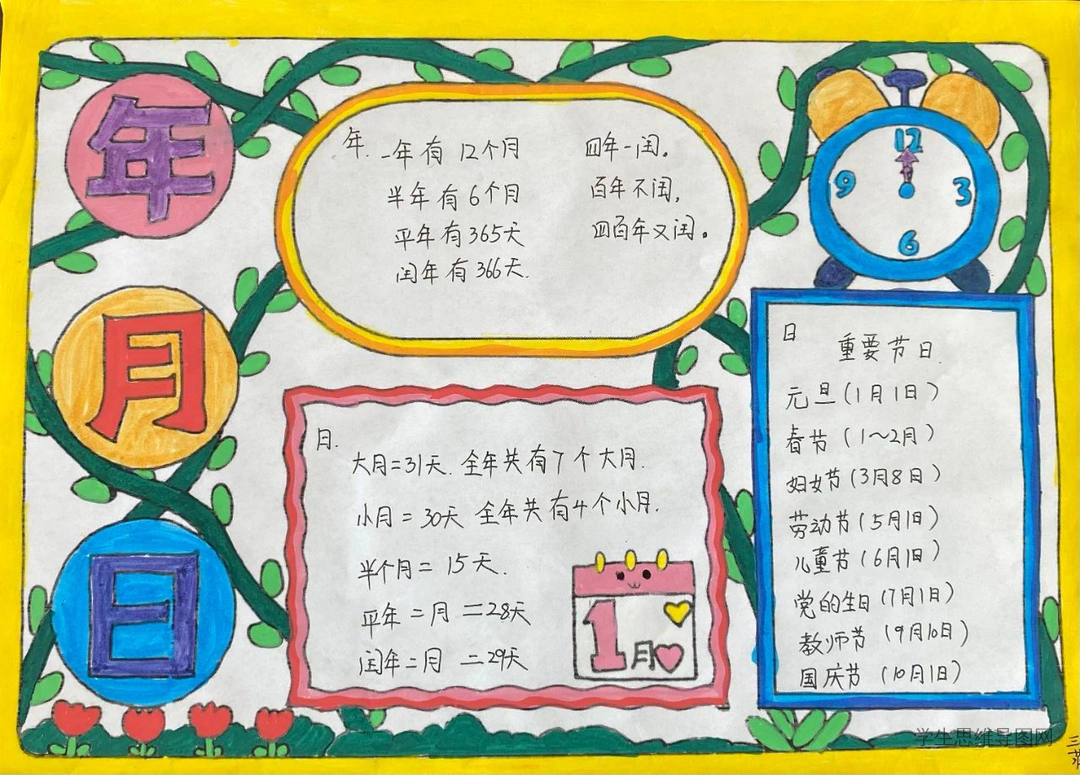 年
月
日
年.
一年有 12个月
半年有 6个月
平年有365天
闰年有366天.
四年一闰。
百年不闰,
四百年又闰。
12
3
6
9
月.
大月=31天. 全年共有7个大月.
小月=30天 全年共有4个小月.
半个月=15天.
平年二月=28天
闰年二月=29天
1
月
日
重要节日.
元旦(1月1日)
春节(1～2月)
妇女节(3月8日)
劳动节(5月1日)
儿童节(6月1日)
党的生日(7月1日)
教师节(9月10日)
国庆节(10月1日)
学生思维导图网